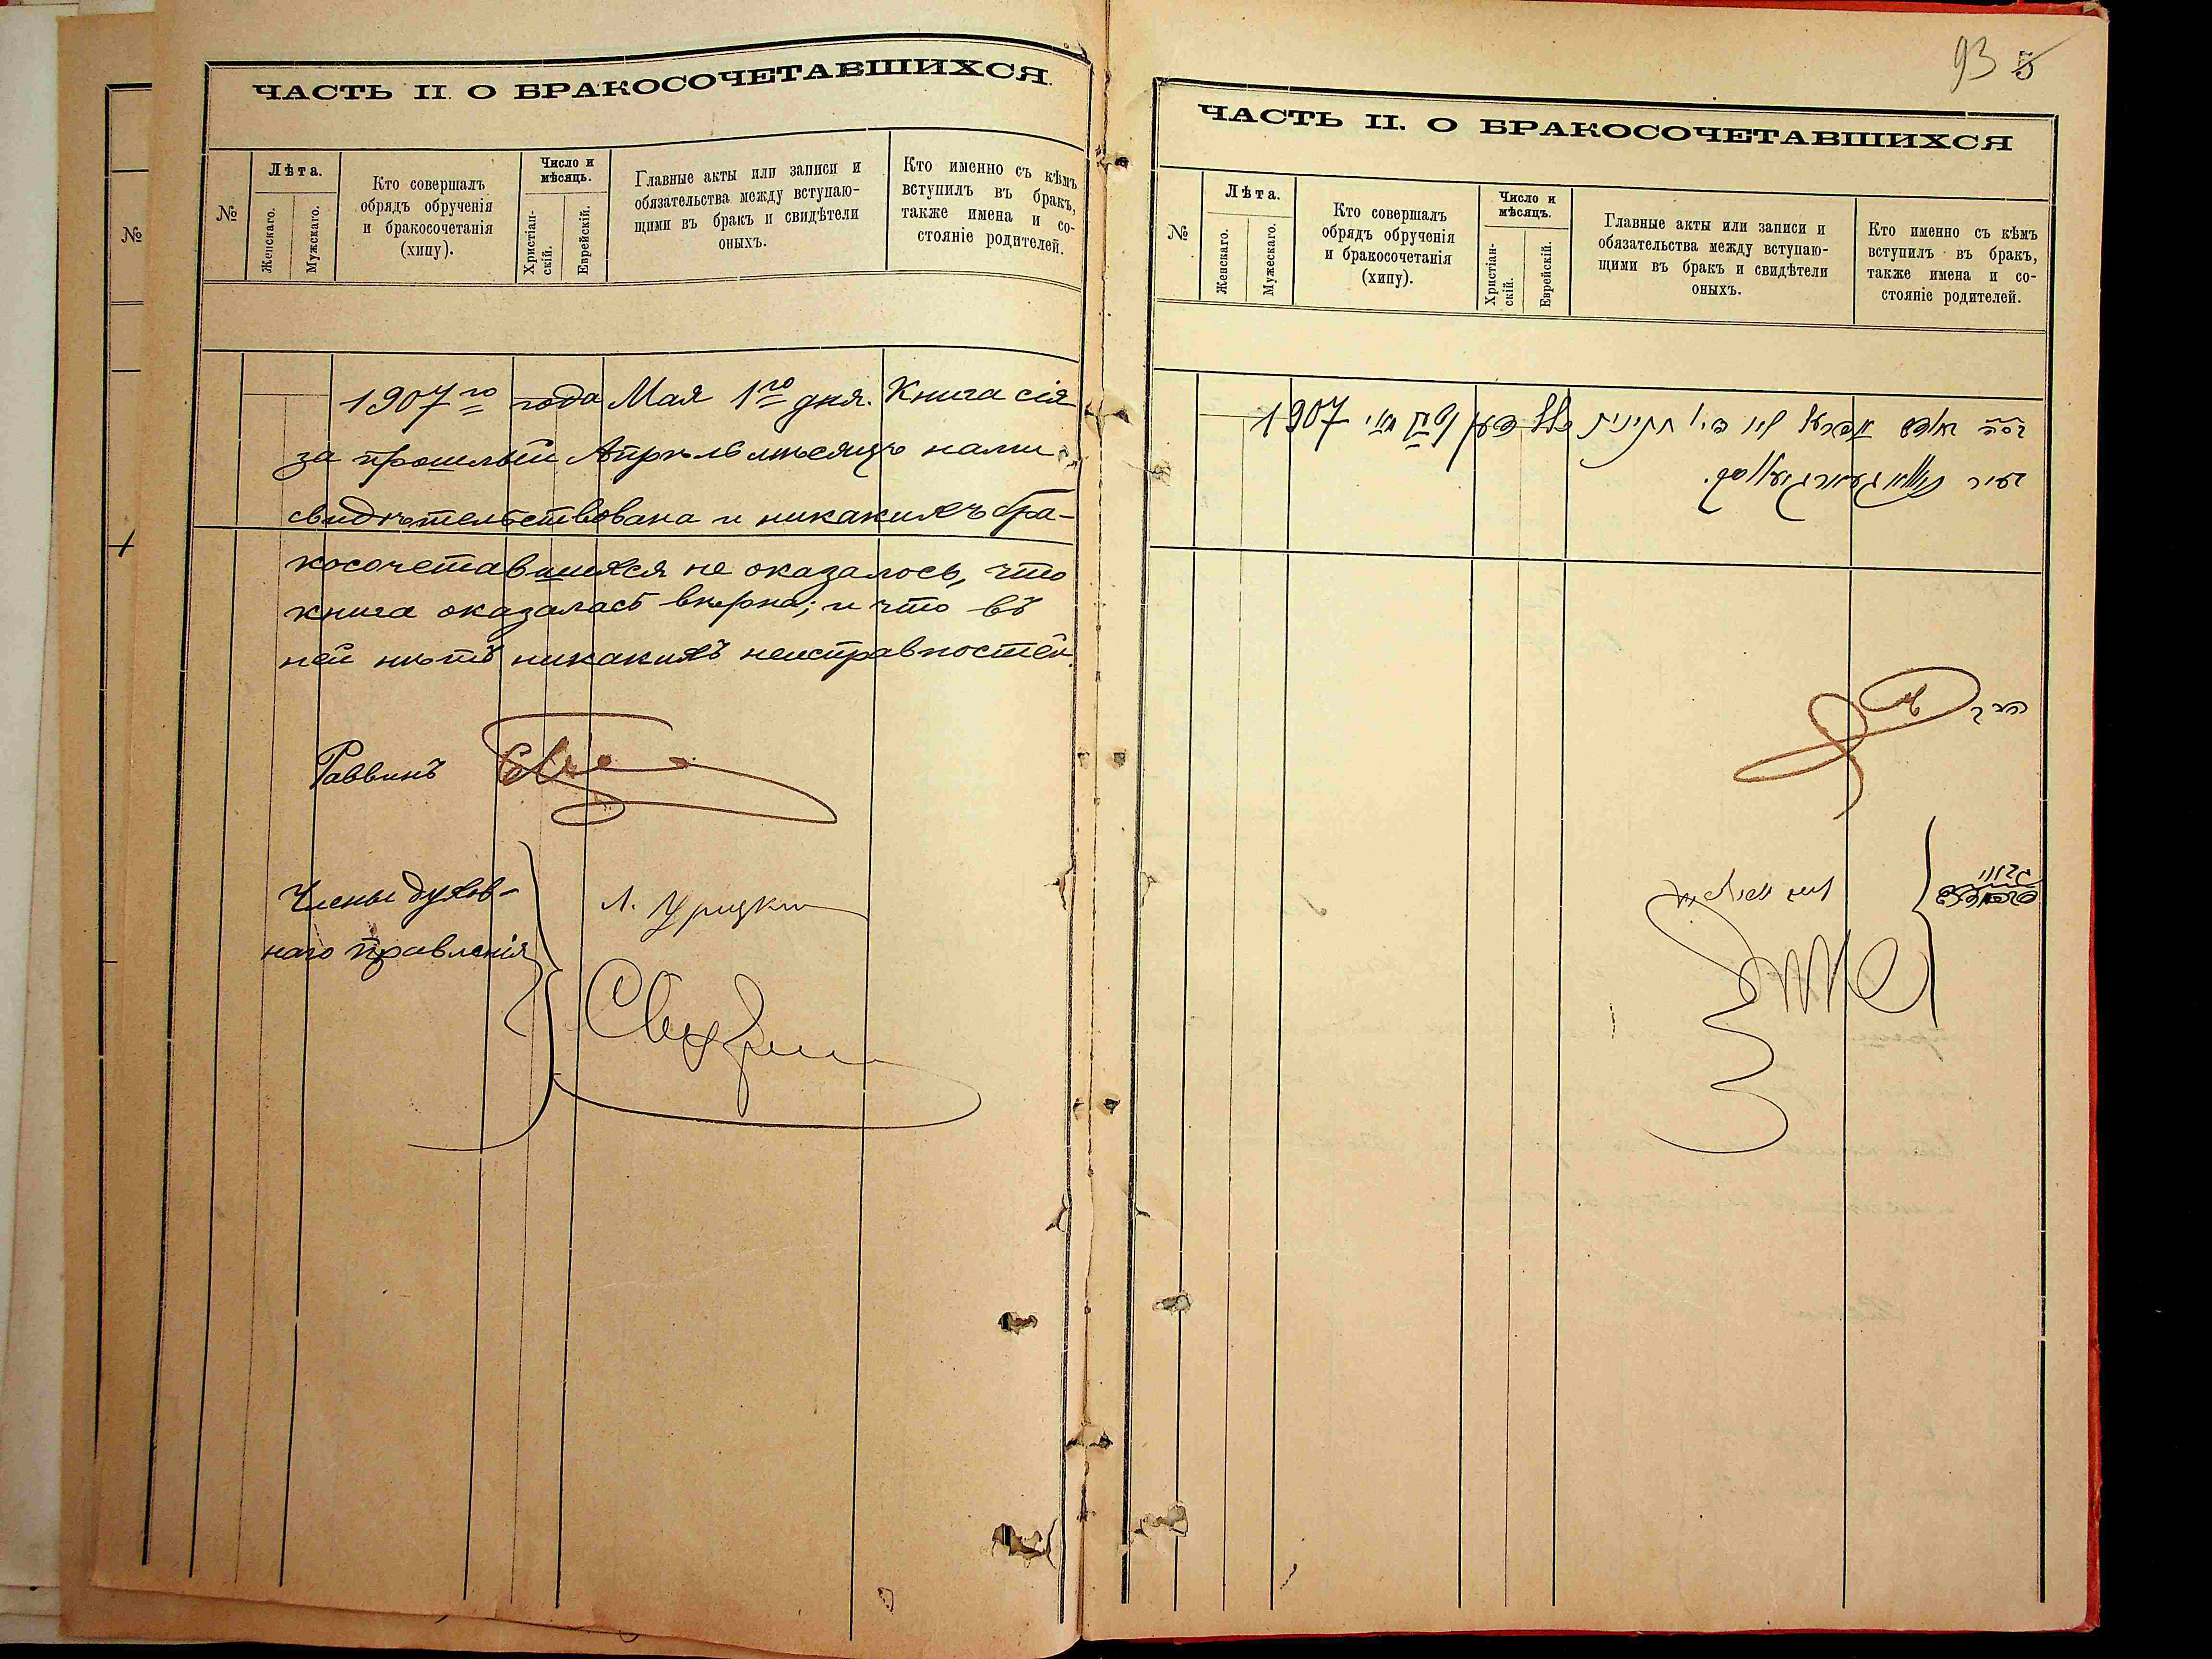 ЧАСТЬ II. О БРАКОСОЧЕТАВШИХСЯ.
№
Лѣта.
Женскаго.
Мужскаго.
Кто совершалъ
обрядъ обрученія
и бракосочетанія
(хипу).
Число и
мѣсяцъ.
Христіан-
скій.
Еврейскій.
Главные акты или записи и
обязательства между вступаю-
щими въ бракъ и свидѣтели
оныхъ.
Кто именно съ кѣмъ
вступилъ въ бракъ,
также имена и со-
стояніе родителей.
№
1907го года Мая 1го дня. Книга сія
за прошлый Апрѣль мѣсяцъ нами
свидѣтельствована и никакихъ бра-
косочетавшихся не оказалось, что
книга оказалась вѣрна; и что въ
ней нѣтъ никакихъ неисправностей.
Раввинъ
Члены духов-
наго правленія
Л. Урицкій
93 5
ЧАСТЬ II. О БРАКОСОЧЕТАВШИХСЯ
№
Лѣта.
Женскаго.
Мужескаго.
Кто совершалъ
обрядъ обрученія
и бракосочетанія
(хипу).
Число и
мѣсяцъ.
Христіан-
скій.
Еврейскій.
Главные акты или записи и
обязательства между вступаю-
щими въ бракъ и свидѣтели
оныхъ.
Кто именно съ кѣмъ
вступилъ въ бракъ,
также имена и со-
стояніе родителей.
1907
הרב